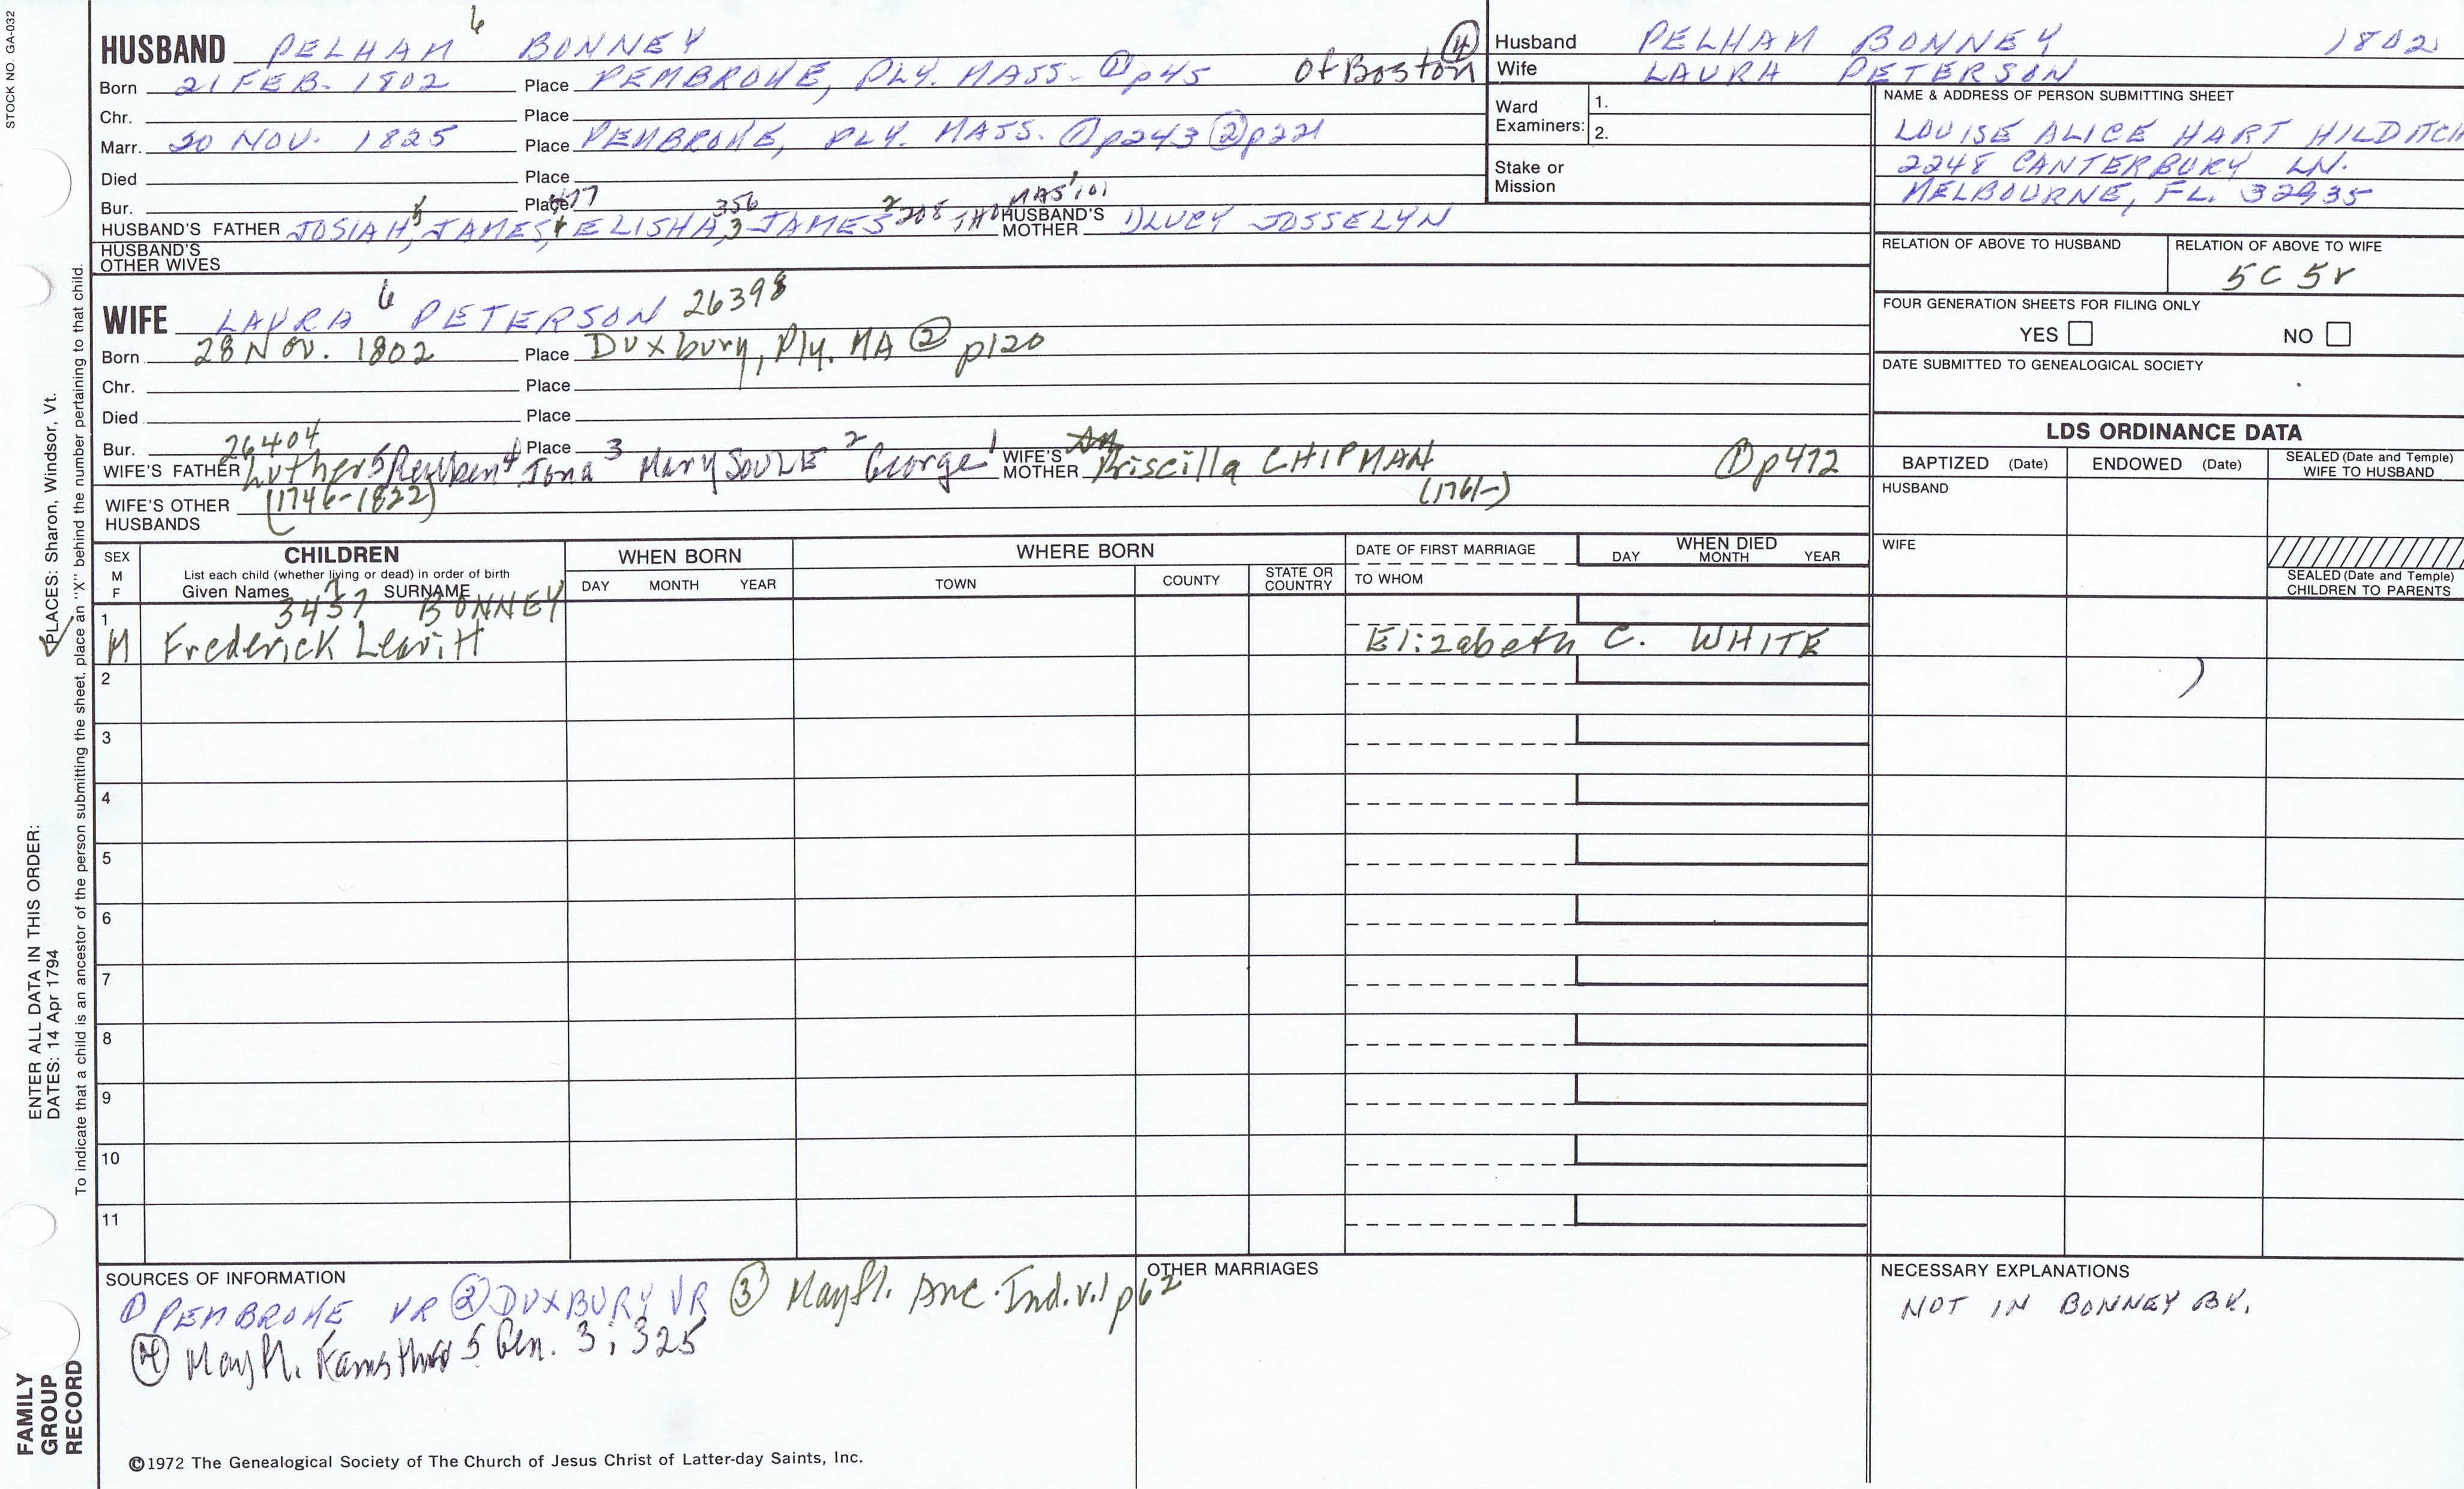 STOCK NO. GA-032
HUSBAND PELHAM 6 BONNEY
Born 21 FEB. 1802 Place PEMBROKE, PLY. MASS. ① p45 Of Boston ④
Chr. Place
Marr. 20 NOV. 1825 Place PEMBROKE, PLY. MASS. ① p243 ② p221
Died Place
Bur. Place
HUSBAND'S FATHER JOSIAH,5 JAMES,4 ELISHA,3 356 JAMES 2 208 THOMAS 1 101 HUSBAND'S MOTHER LUCY JOSSELYN
HUSBAND'S OTHER WIVES
WIFE LAURA 6 PETERSON 26398
Born 28 Nov. 1802 Place Duxbury, Ply. MA ② p120
Chr. Place
Died Place
Bur. Place
26404
WIFE'S FATHER Luther 5 Reuben 4 Jona 3 Mary SOULE 2 George 1 WIFE'S MOTHER Priscilla CHIPMAN ① p472
(1746-1822) (1761-)
WIFE'S OTHER HUSBANDS
Husband PELHAM BONNEY 1802
Wife LAURA PETERSON
Ward Examiners: 1.
2.
Stake or Mission
NAME & ADDRESS OF PERSON SUBMITTING SHEET
LOUISE ALICE HART HILDITCH
2248 CANTERBURY LN.
MELBOURNE, FL. 32935
RELATION OF ABOVE TO HUSBAND RELATION OF ABOVE TO WIFE
5C 5r
FOUR GENERATION SHEETS FOR FILING ONLY
YES NO
DATE SUBMITTED TO GENEALOGICAL SOCIETY
LDS ORDINANCE DATA
BAPTIZED (Date) ENDOWED (Date) SEALED (Date and Temple) WIFE TO HUSBAND
HUSBAND
WIFE
SEALED (Date and Temple) CHILDREN TO PARENTS
SEX M F CHILDREN WHEN BORN WHERE BORN DATE OF FIRST MARRIAGE WHEN DIED
List each child (whether living or dead) in order of birth
Given Names SURNAME DAY MONTH YEAR TOWN COUNTY STATE OR COUNTRY TO WHOM DAY MONTH YEAR
1 3457 7 BONNEY
M Frederick Leavitt Elizabeth C. WHITE
2
3
4
5
6
7
8
9
10
11
SOURCES OF INFORMATION
① PEMBROKE VR ② DUXBURY VR ③ Mayfl. Anc. Ind. v.1 p62
④ Mayfl. Fams thro 5 Gen. 3:325
OTHER MARRIAGES
NECESSARY EXPLANATIONS
NOT IN BONNEY BK.
©1972 The Genealogical Society of The Church of Jesus Christ of Latter-day Saints, Inc.
FAMILY GROUP RECORD
ENTER ALL DATA IN THIS ORDER:
DATES: 14 Apr 1794
PLACES: Sharon, Windsor, Vt.
To indicate that a child is an ancestor of the person submitting the sheet, place an "X" behind the number pertaining to that child.